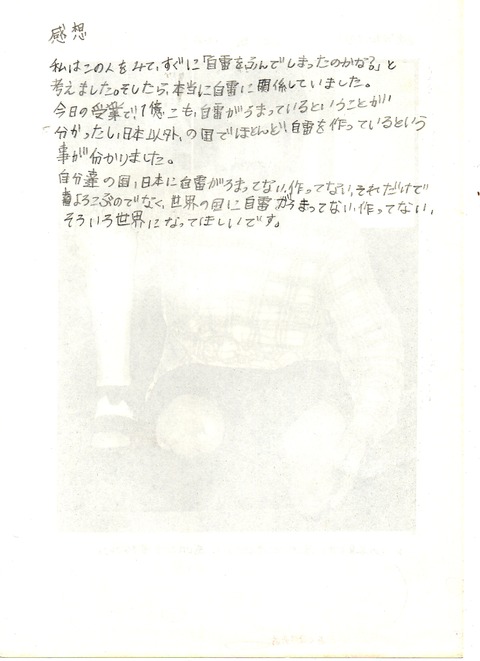 感想
私はこの人をみて、すぐに「自雷をふんでしまったのかな。」と
考えました。そしたら、本当に自雷に関係していました。
今日の授業で、1億こも、自雷がうまっているということが
分かったし、日本以外の国でほとんど、自雷を作っているという
事が分かりました。
自分達の国、日本に自雷がうまってない、作ってない、それだけで
よろこぶのでなく、世界の国に自雷がうまってない、作ってない、
そういう世界になってほしいです。